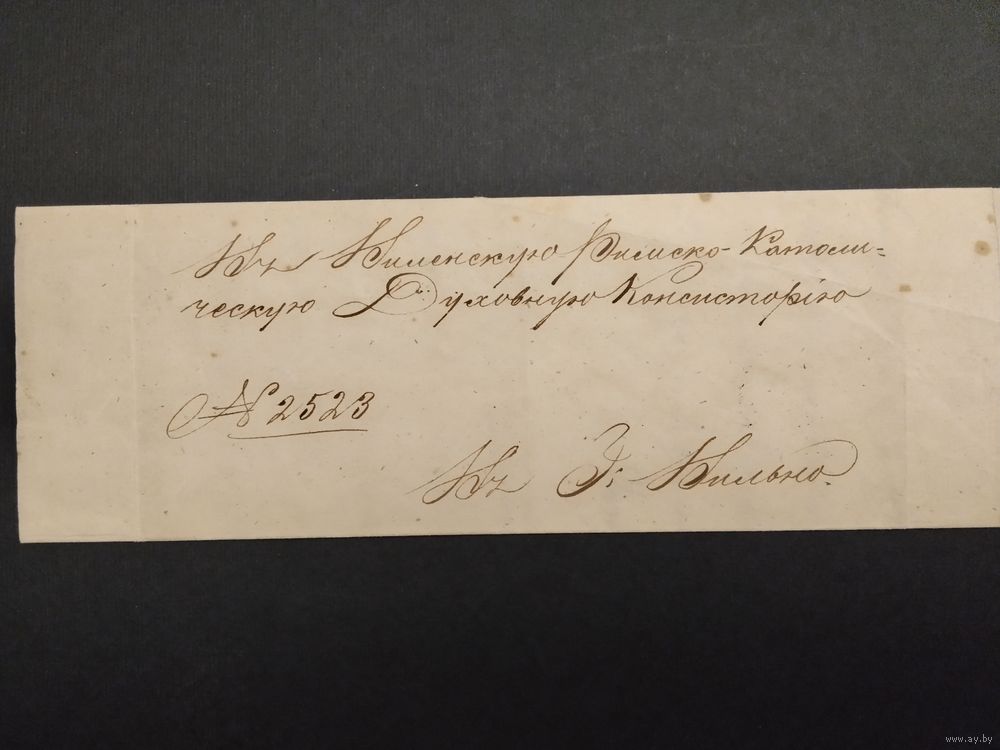 Въ Виленскую Римско-Католи=
ческую Духовную Консисторію
№ 2523
Въ Г: Вильно.
www.ay.by